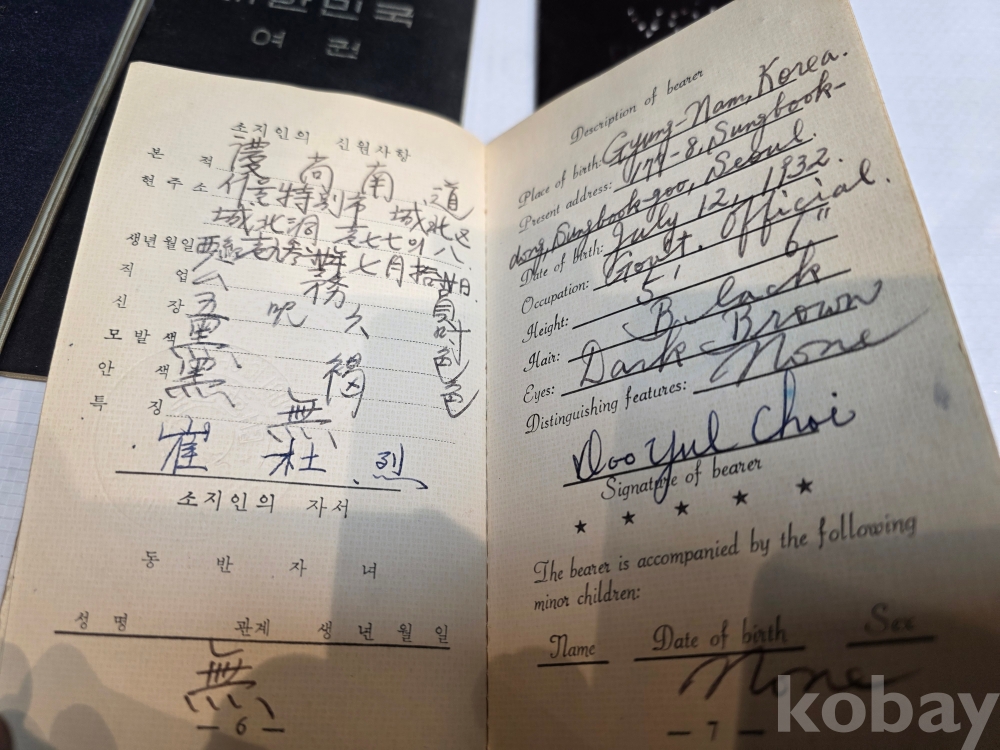 대한민국
여 권
소지인의 신원사항
본 적 慶尚南道
현 주 소 서울特別市 城北区
城北洞 壱七七의 八
생년월일 西紀 七月拾 日
직 업 公務員
신 장 五呎六吋
모 발 색 黑色
안 색 黑褐色
특 징 無
崔杜烈
소지인의 자서
동 반 자 녀
성 명 관계 생 년 월 일
無
— 6 —
Description of bearer
Place of birth: Gyung-Nam, Korea.
Present address: 177-8, Sungbook-
dong, Sungbook-goo, Seoul.
Date of birth: July 12, 1932.
Occupation: Govt. Official.
Height: 5' 6"
Hair: Black
Eyes: Dark-Brown
Distinguishing features: None
Doo Yul Choi
Signature of bearer
★ ★ ★ ★ ★
The bearer is accompanied by the following
minor children:
Name Date of birth Sex
None
— 7 —
kobay